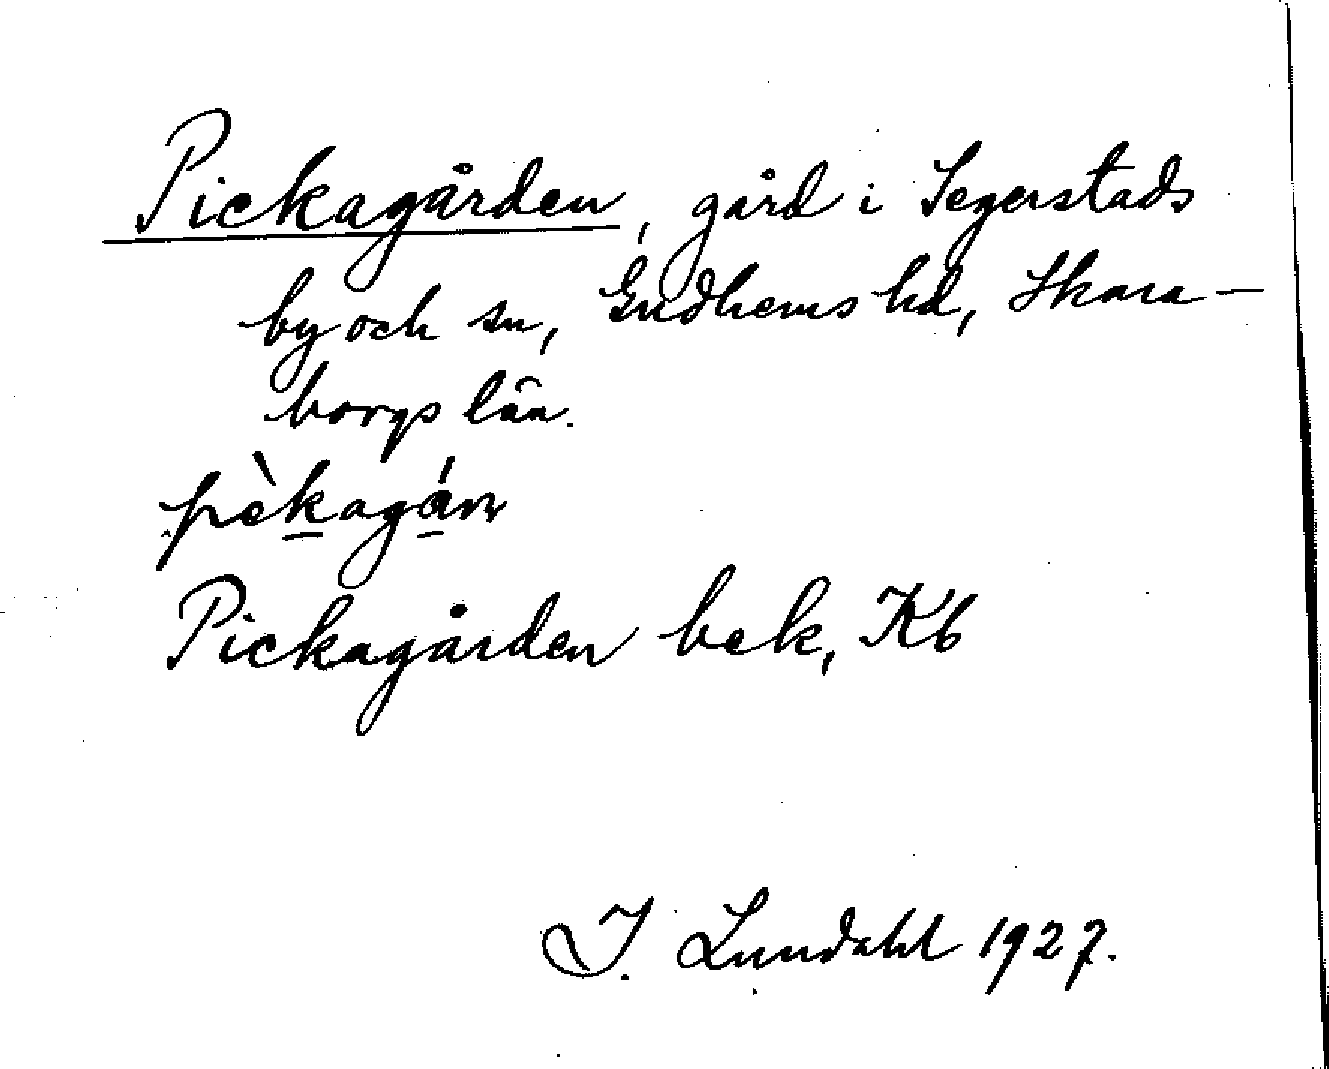 Pickagården, gård i Segerstads
by och sn, Gudhems hd, Skara-
borgs län.
pèkagán
Pickagården bek, Kb
I. Lundahl 1927.